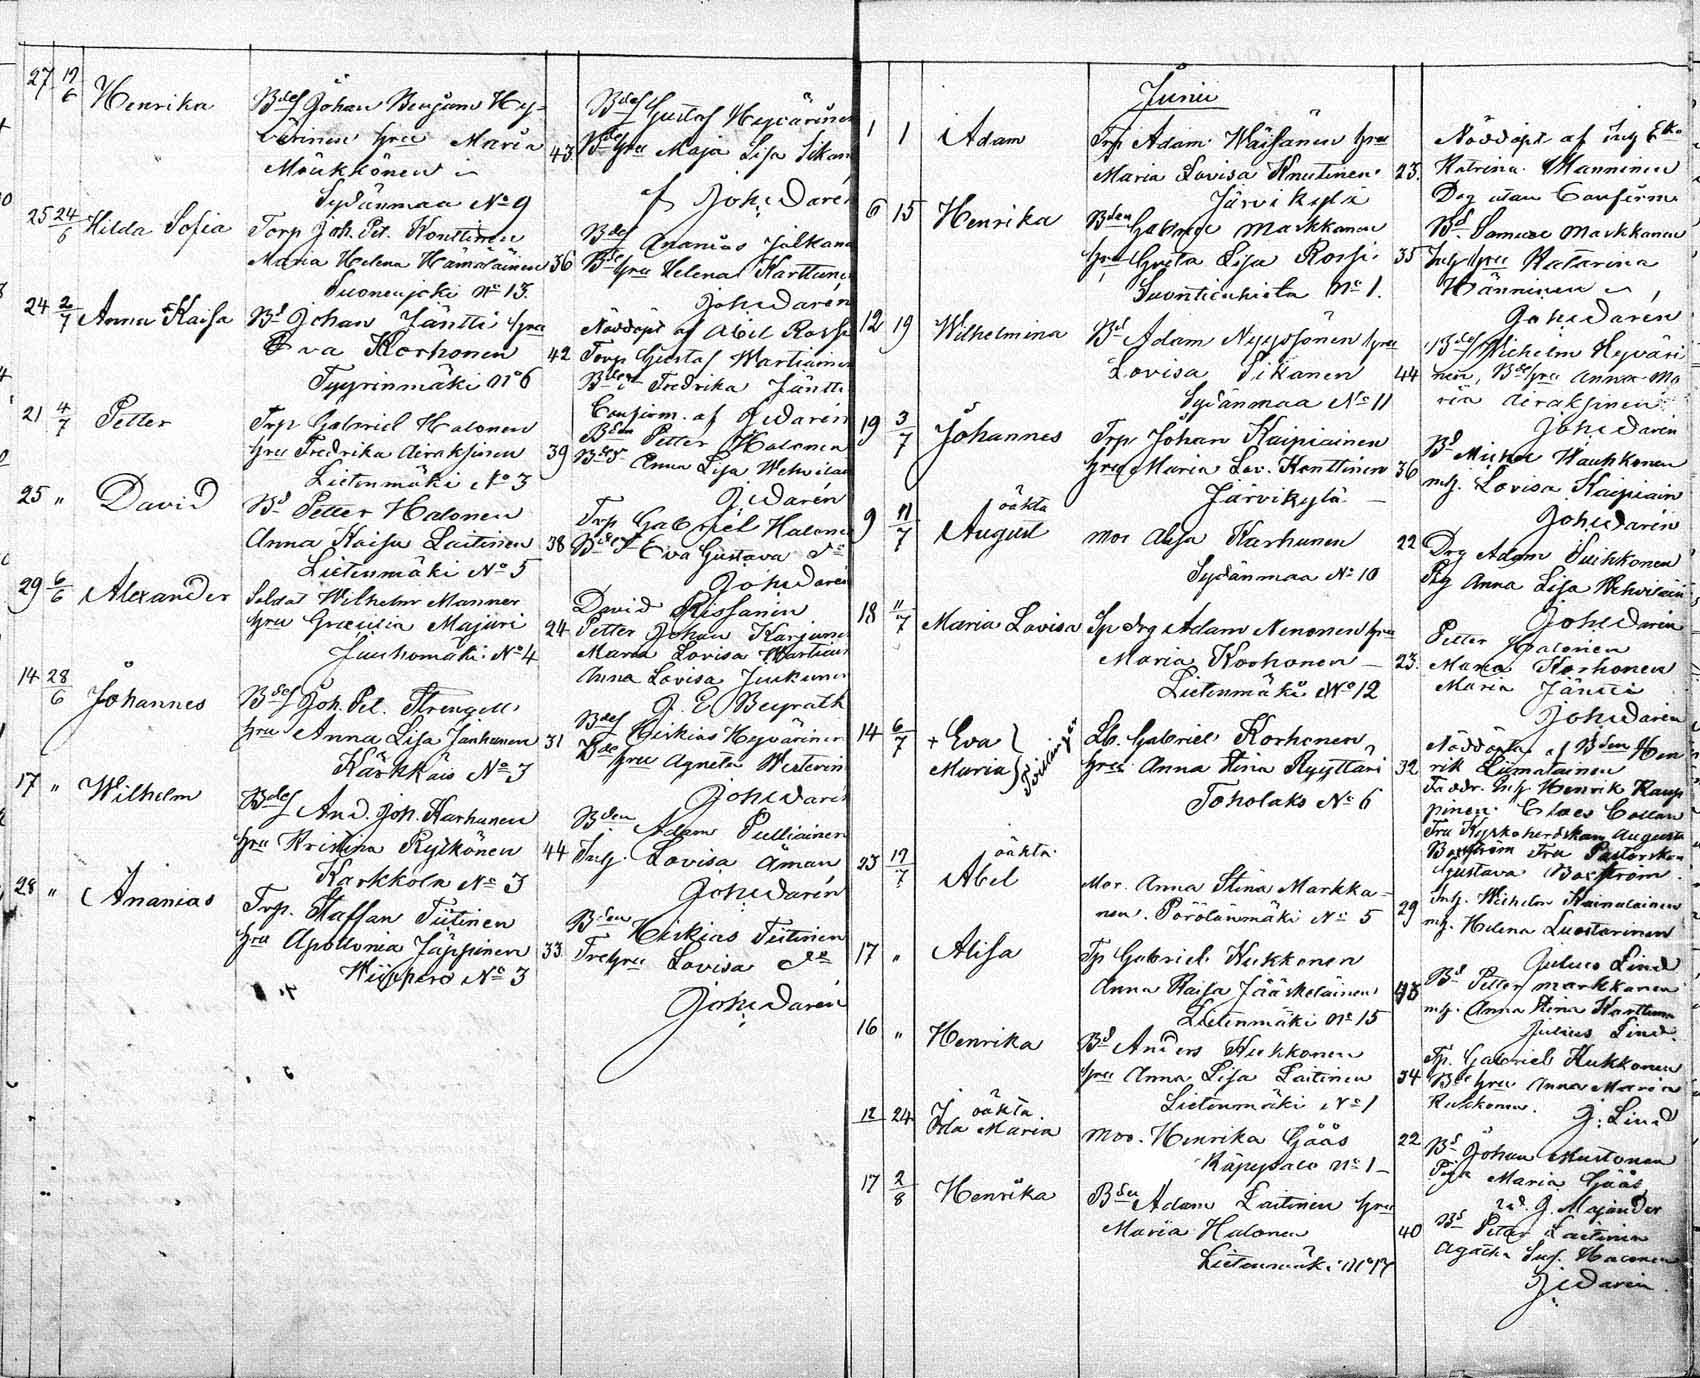 27 19/6 Henrika Bdes Johan Benjam Hy-
värinen hru Maria 43.
Möukkönen
Sydänmaa No 9
Bdes Gustaf Hyvärinen
Bde hru Maja Lisa Sikan
af Joh. Darén
25 24/6 Hilda Sofia Torp Joh. Pet. Konttinen
Maria Helena Hämäläinen 36
Suonenjoki No 13.
Bdes Ananias Jalkan
Bde hru Helena Karttunen
Joh Darén
24 2/7 Anna Kaisa Bd Johan Jäntti hru
Eva Korhonen 42
Tyyrinmäki No 6
Nöddöpt af Abel Rossi
Torp Gustaf Wartiainen
Fredrika Jäntti
Confirm. af J. Darén
21 4/7 Petter Trp Gabriel Halonen
hru Fredrika Airaksinen 39
Lietenmäki No 3
Bden Petter Halonen
Bdes Anna Lisa Wehvilai
J. Darén
25 " David Bd Petter Halonen
Anna Kaisa Laitinen 38
Lietenmäki No 5
Trp Gabriel Halonen
Eva Gustava do
Joh Darén
29 6/6 Alexander Soldat Wilhelm Manner
hru Græcilia Majuri 24
Jauhomäki No 4
David Rissanen
Petter Johan Karjunen
Maria Lovisa Wartiain
Anna Lovisa Juskunen
J. E. Beyrath
14 28/6 Johannes Bdes Joh. Pet. Strengell
hru Anna Lisa Janhunen 31
Kärkkäis No 3
Bdes Hiskias Hyvärinen
Bde hru Agneta Westerin
Joh Darén
17 " Wilhelm Bdes And. Joh. Karhunen
hru Kristina Rytkönen 44
Karkkola No 3
Bden Adam Pulliainen
Inh. Lovisa Åman
Joh Darén
28 " Ananias Trp. Staffan Tiitinen
hru Apollonia Jäppinen 33.
Wiippero No 3
Bden Hiskias Tiitinen
Tre hru Lovisa do
Joh Darén
Junii
1 1 Adam Trp Adam Wäisänen hru
Maria Lovisa Knutinen 23.
Järvikylä
Nöddöpt af Inh Ek
Katrina Manninen
Drg utan Confirm.
6 15 Henrika Bden Gabriel Markkanen
hru Greta Lisa Rossi 35
Suontienhieta No 1.
Bd. Samuel Markkanen
Inh hru Katarina
Hänninen
Joh Darén
12 19 Wilhelmina Bd Adam Nyyssönen hru
Lovisa Sikanen 44
Sydänmaa No 11
Bdes Wilhelm Hyväri
nen, Bde hru Anna Ma
ria Airaksinen
Joh Darén
19 3/7 Johannes Trp Johan Kaipiainen
hru Maria Lov. Konttinen 36
Järvikylä
Bd Mikel Wauhkonen
mh. Lovisa Kaipiain
Joh Darén
9 11/7 oäkta
August mor Alisa Karhunen 22
Sydänmaa No 10
Drg Adam Suihkonen
Pig Anna Lisa Wehviläin
Joh Darén
18 11/7 Maria Lovisa Sp drg Adam Nenonen hru
Maria Korhonen 23.
Lietenmäki No 12
Petter Halonen
Maria Korhonen
Maria Jäntti
Joh Darén
14 6/7 + Eva } Tvillingar
Maria
Lb. Gabriel Korhonen
hru Anna Stina Ryyttäri 32
Toholaks No 6
Nöddöpta af Bden Hen
rik Liimatainen
Faddr. Inh Henrik Kaup
pinen Claes Collan
Fru Kyrkoherdskan Augusta
Boxström Fru Pastorskan
Gustava Boxström
23 19/7 oäkta
Abel Mor. Anna Stina Markka-
nen. Pörölänmäki No 5 29
Inh. Wilhelm Kainulainen
mh. Helena Luostarinen
Julius Lind
17 " Alisa Tp Gabriel Kukkonen
Anna Kaisa Jääskeläinen 43
Lietenmäki No 15
Bd Petter Markkanen
mh. Anna Stina Karttunen
Julius Lind.
16 " Henrika Bd Anders Kukkonen
hru Anna Lisa Laitinen 34
Lietenmäki No 1
Tp. Gabriel Kukkonen
Bde hru Anna Maria
Kukkonen. J. Lind
12 24 oäkta.
Ida Maria Mor. Henrika Gåås 22
Räpysalo No 1
Bd Johan Mustonen
Piga Maria Gåås
J. Majander
17 2/8 Henrika Bden Adam Laitinen hru
Maria Halonen 40
Lietenmäki No 17
Bd Peter Laitinen
Agatha Halonen
J. Darén